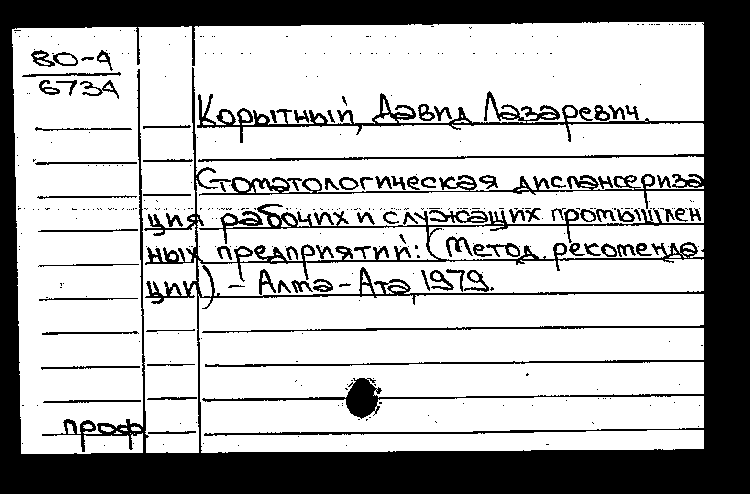 80-4
6734
Корытный, Давид Лазаревич.
Стоматологическая диспансериза
ция рабочих и служащих промышлен
ных предприятий: (Метод. рекоменда-
ции). - Алма-Ата, 1979.
проф